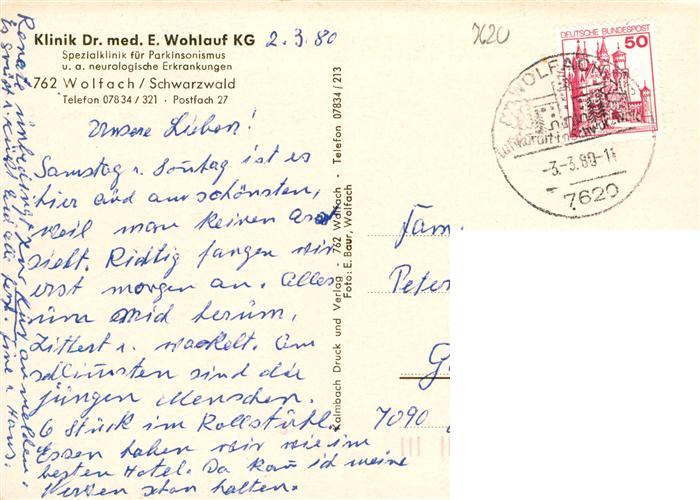 Klinik Dr. med. E. Wohlauf KG 2.3.80
Spezialklinik für Parkinsonismus
u. a. neurologische Erkrankungen
762 Wolfach/Schwarzwald
Telefon 07834/321 · Postfach 27
Unsere Lieben!
Samstag u. Sonntag ist es
hier am schönsten,
weil man keinen Arzt
sieht. Richtig fangen wir
erst morgen an. Alles
um mich herum,
Zittert u. wackelt. Am
schlimmsten sind die
jüngen Menschen.
6 Stück im Rollstuhl.
Essen haben wir wie im
besten Hotel. Da kann ich meine
Nerven schon halten.
Renate unbedingt zur Kur anmelden.
Es grüßt u. küßt Euch alle u. Hans.
Kalmbach Druck und Verlag - 762 Wolfach - Telefon 07834/213
Foto: E. Baur, Wolfach
7620
DEUTSCHE BUNDESPOST
50
WOLFACH
Luftkurort im Schwarzwald
-3.-3.80-11
7620
Fam.
Peter
G
7090